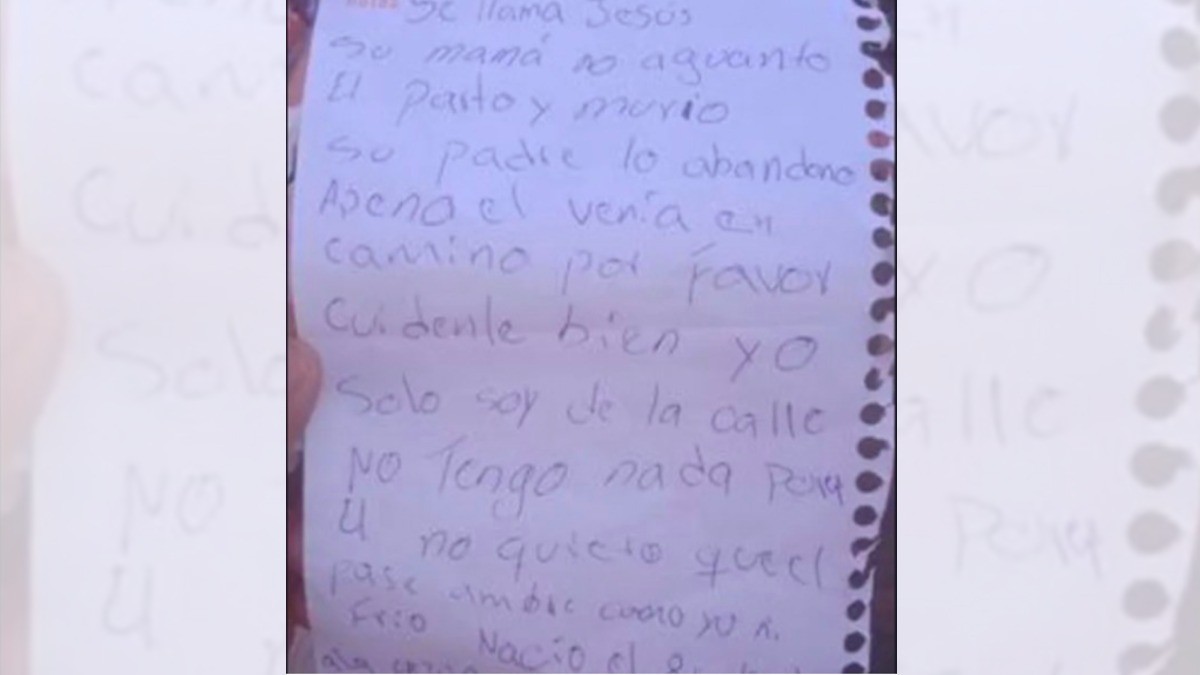 notas
Se llama Jesús
su mamá no aguanto
El parto y murio
su padre lo abandono
Apena el venía en
camino por favor
Cuidenle bien yo
Solo soy de la calle
NO Tengo nada Para
El
no quiero que el
pase ambre como yo n.
Frio Nacio el 8